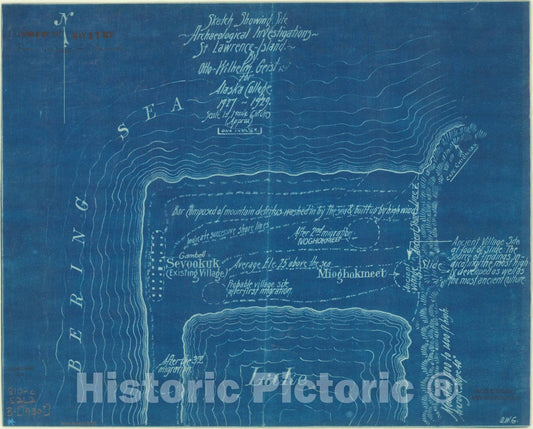 Sketch Showing Site
~Archaeological Investigations~
St Lawrence Island
By
Otto Wilhelm Geist
for
Alaska College
1927 ~ 1929
N
BERING SEA
Bar Composed of mountain detritus washed in by the sea & built up by high wind
Indicate successive shore lines
After 2nd migration
NOGHOKMEET
Gambell
Sevookuk
(Existing Village)
Average Ele. 25 above the sea
Mioghokmeet
Probable village site
after first migration
After the 3rd
migration
Lake
Slide
Ancient Village Site
at foot of Slide. The
source of findings in-
dicating the most high-
ly developed as well as
the most ancient culture.
O.W.G.
Historic Pictoric ®